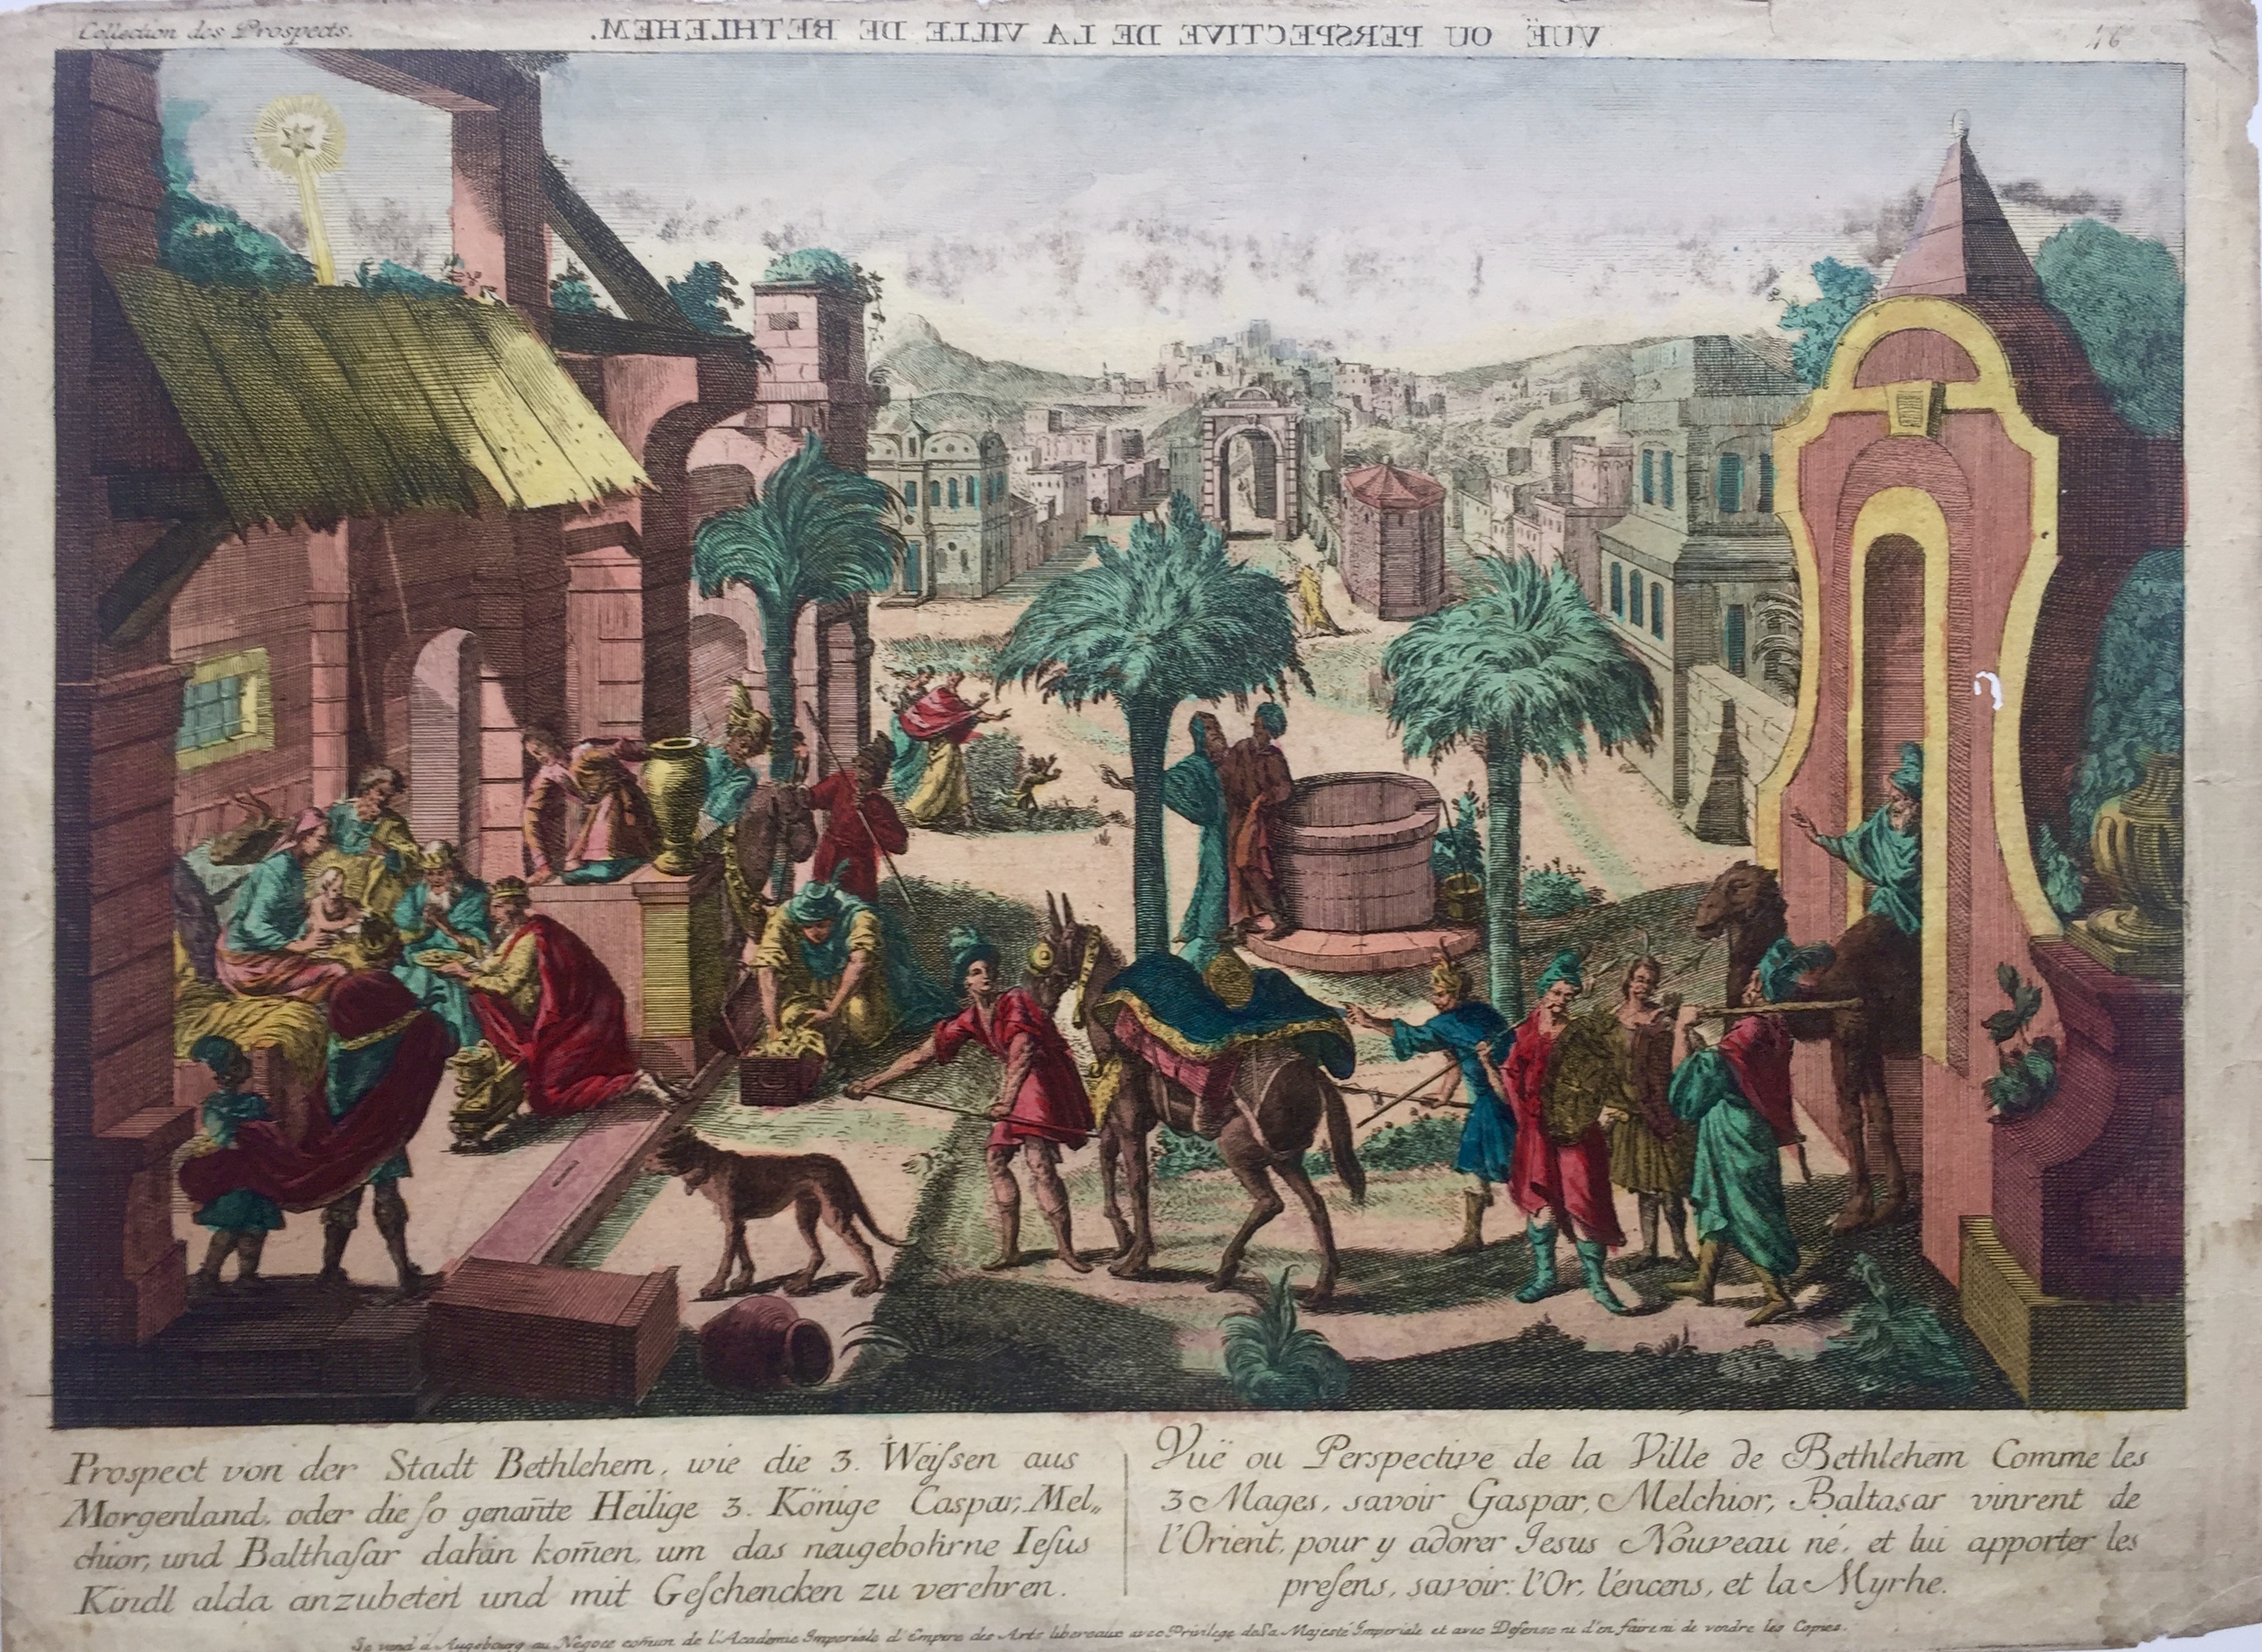 Collection des Prospects.
VUË OU PERSPECTIVE DE LA VILLE DE BETHLEHEM.
46
Prospect von der Stadt Bethlehem, wie die 3. Weiſsen aus
Morgenland, oder die ſo genan̄te Heilige 3. Könige Caspar, Mel„
chior, und Balthaſar dahin kom̄en, um das neugebohrne Ieſus
Kindl alda anzubeten und mit Geſchencken zu verehren.
Vuë ou Perspective de la Ville de Bethlehem Comme les
3 Mages, savoir Gaspar, Melchior, Baltasar vinrent de
l'Orient, pour y adorer Jesus Nouveau né, et lui apporter les
preſens, savoir: l'Or, l'encens, et la Myrhe.
Se vend à Augsbourg au Negoce com̄un de l'Academie Imperiale d'Empire des Arts libereaux avec Privilege de Sa Majesté Imperiale et avec Defense ni d'en faire ni de vendre les Copies.